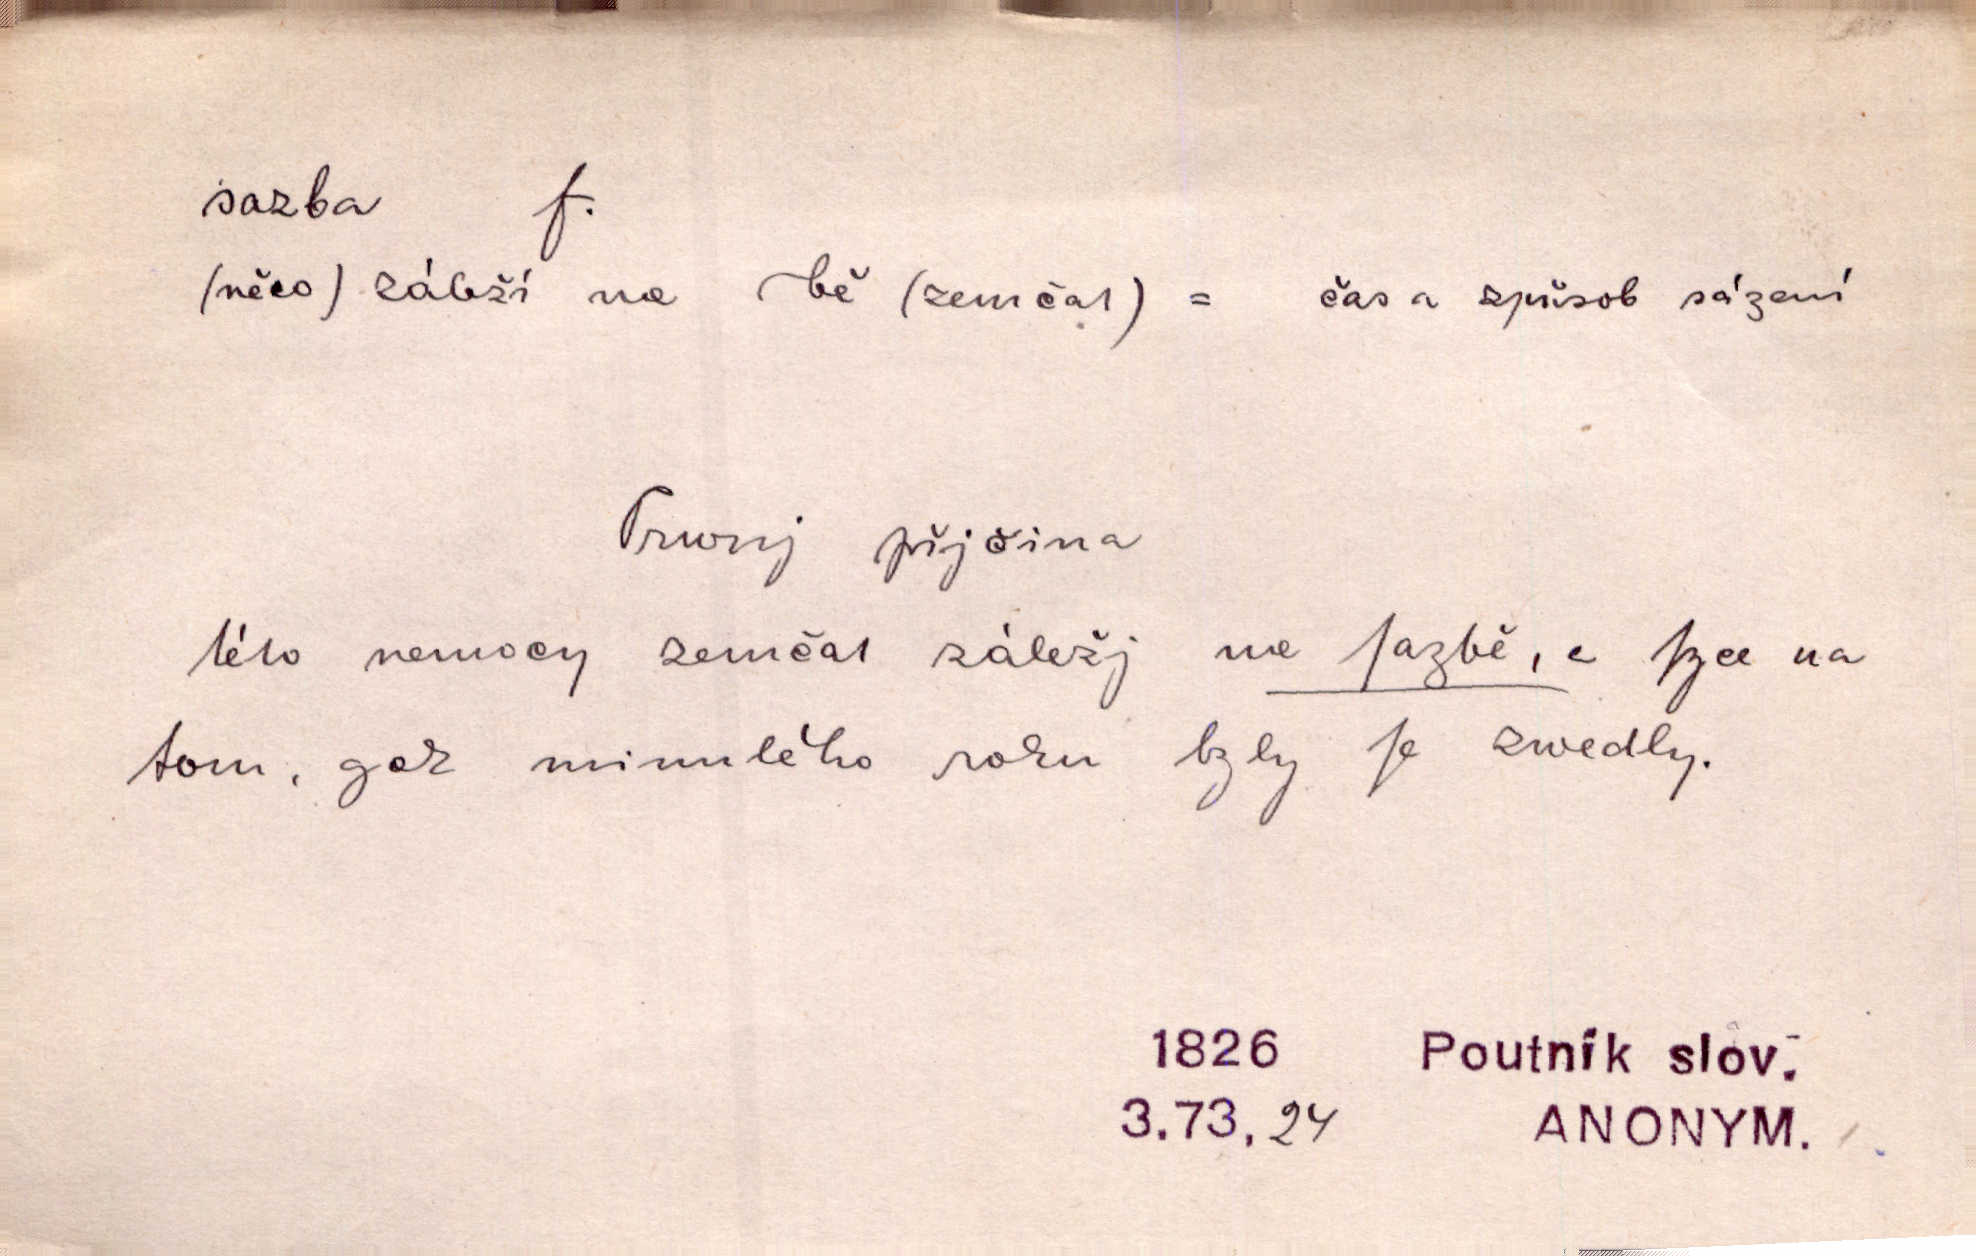 sazba f.
(něco) záleží na ~bě (zemčat) = čas a způsob sázení
Prwnj přjčina
této nemocy zemčat záležj na ſazbě, a ſyce na
tom, gak minulého roku byly ſe zwedly.
1826 Poutník slov.
3.73, 24 ANONYM.